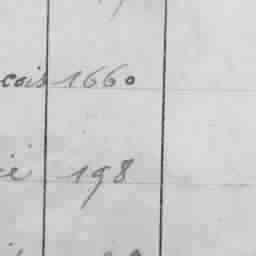 cois 1660
ié 198